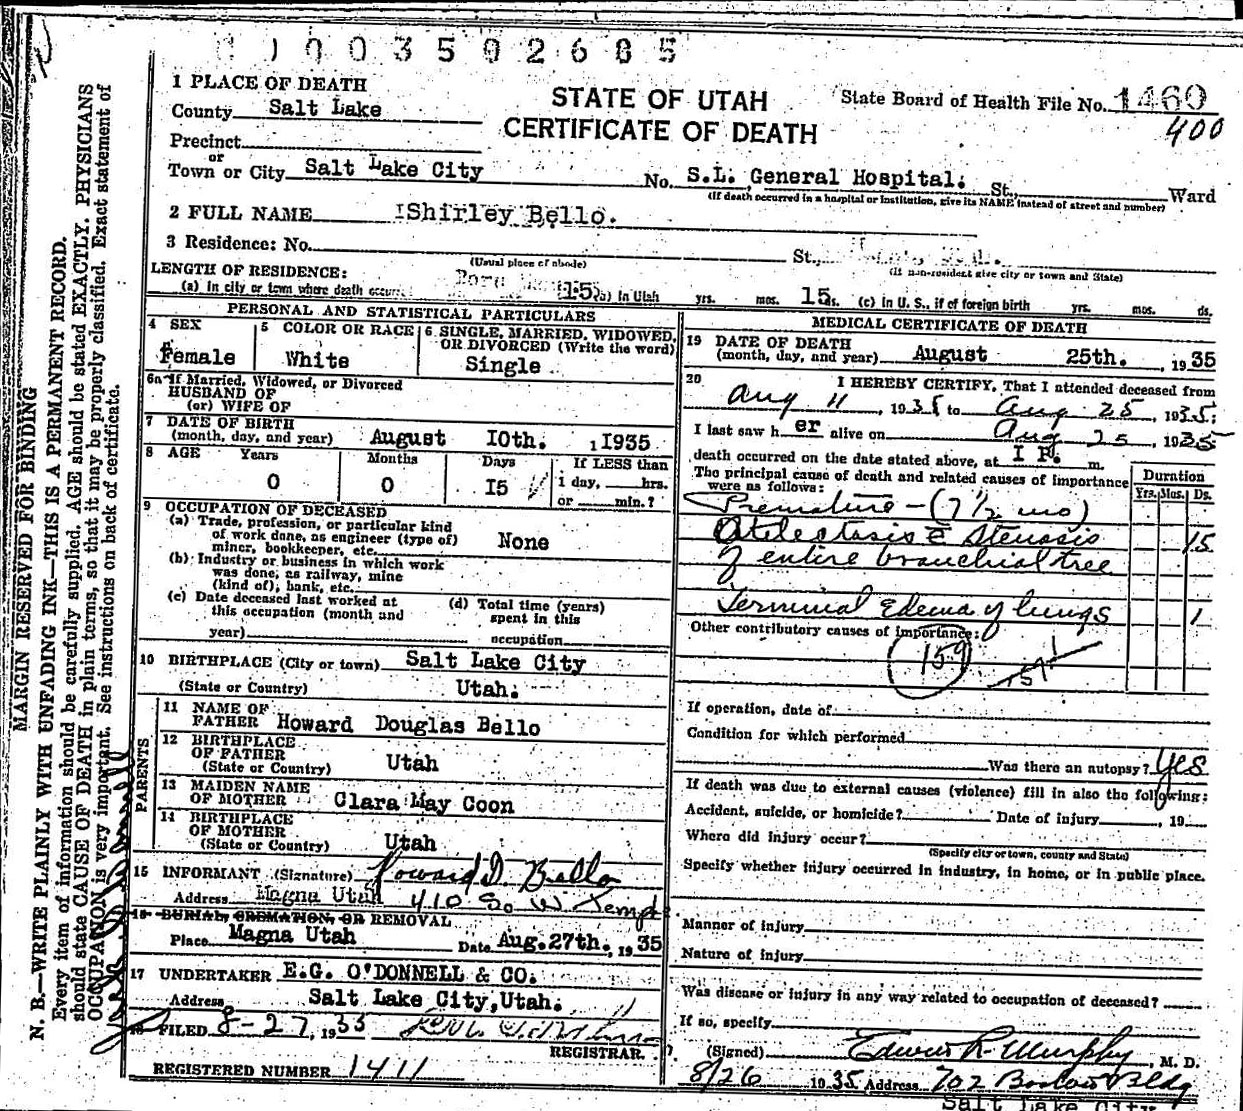 003502605
1 PLACE OF DEATH
County Salt Lake
STATE OF UTAH
CERTIFICATE OF DEATH
State Board of Health File No. 1460
400
Precinct
or
Town or City Salt Lake City No. S.L. General Hospital. St., Ward
(If death occurred in a hospital or institution, give its NAME instead of street and number)
2 FULL NAME Shirley Bello.
3 Residence: No. St.,
(Usual place of abode) (If non-resident give city or town and State)
LENGTH OF RESIDENCE:
(a) In city or town where death occurred 15 (b) In Utah yrs. mos. 15 ds. (c) in U. S., if of foreign birth yrs. mos. ds.
PERSONAL AND STATISTICAL PARTICULARS
4 SEX
Female
5 COLOR OR RACE
White
6 SINGLE, MARRIED, WIDOWED,
OR DIVORCED (Write the word)
Single
6a If Married, Widowed, or Divorced
HUSBAND OF
(or) WIFE OF
7 DATE OF BIRTH
(month, day, and year) August 10th. , 1935
8 AGE Years Months Days If LESS than
0 0 15 1 day, hrs.
or min.?
9 OCCUPATION OF DECEASED
(a) Trade, profession, or particular kind
of work done, as engineer (type of)
miner, bookkeeper, etc. None
(b) Industry or business in which work
was done, as railway, mine
(kind of), bank, etc.
(c) Date deceased last worked at
this occupation (month and
year)
(d) Total time (years)
spent in this
occupation
10 BIRTHPLACE (City or town) Salt Lake City
(State or Country) Utah.
PARENTS
11 NAME OF
FATHER Howard Douglas Bello
12 BIRTHPLACE
OF FATHER
(State or Country) Utah
13 MAIDEN NAME
OF MOTHER Clara May Coon
14 BIRTHPLACE
OF MOTHER
(State or Country) Utah
15 INFORMANT (Signature) Howard D. Bello
Address Magna Utah 410 So. W. Temple
16 BURIAL, CREMATION, OR REMOVAL
Place Magna Utah Date Aug. 27th. , 1935
17 UNDERTAKER E.G. O'DONNELL & CO.
Address Salt Lake City, Utah.
18 FILED 8-27, 1935
REGISTRAR.
REGISTERED NUMBER 1411
MEDICAL CERTIFICATE OF DEATH
19 DATE OF DEATH
(month, day, and year) August 25th. , 1935
20 I HEREBY CERTIFY, That I attended deceased from
Aug 11, 1935 to Aug 25, 1935;
I last saw her alive on Aug 25, 1935
death occurred on the date stated above, at 1 P. m.
The principal cause of death and related causes of importance
were as follows:
Duration
Yrs. Mos. Ds.
Premature - (7 1/2 mo)
Atelectasis c̄ Stenosis 15
of entire branchial tree
Terminal Edema of lungs 1
Other contributory causes of importance:
159
If operation, date of
Condition for which performed
Was there an autopsy? Yes
If death was due to external causes (violence) fill in also the following:
Accident, suicide, or homicide? Date of injury , 19
Where did injury occur?
(Specify city or town, county and State)
Specify whether injury occurred in industry, in home, or in public place.
Manner of injury
Nature of injury
Was disease or injury in any way related to occupation of deceased?
If so, specify
(Signed) Edwin R. Murphy, M. D.
8/26 1935 Address 702 Boston Bldg
Salt Lake City
MARGIN RESERVED FOR BINDING
N. B.—WRITE PLAINLY WITH UNFADING INK—THIS IS A PERMANENT RECORD.
Every item of information should be carefully supplied. AGE should be stated EXACTLY. PHYSICIANS
should state CAUSE OF DEATH in plain terms, so that it may be properly classified. Exact statement of
OCCUPATION is very important. See instructions on back of certificate.